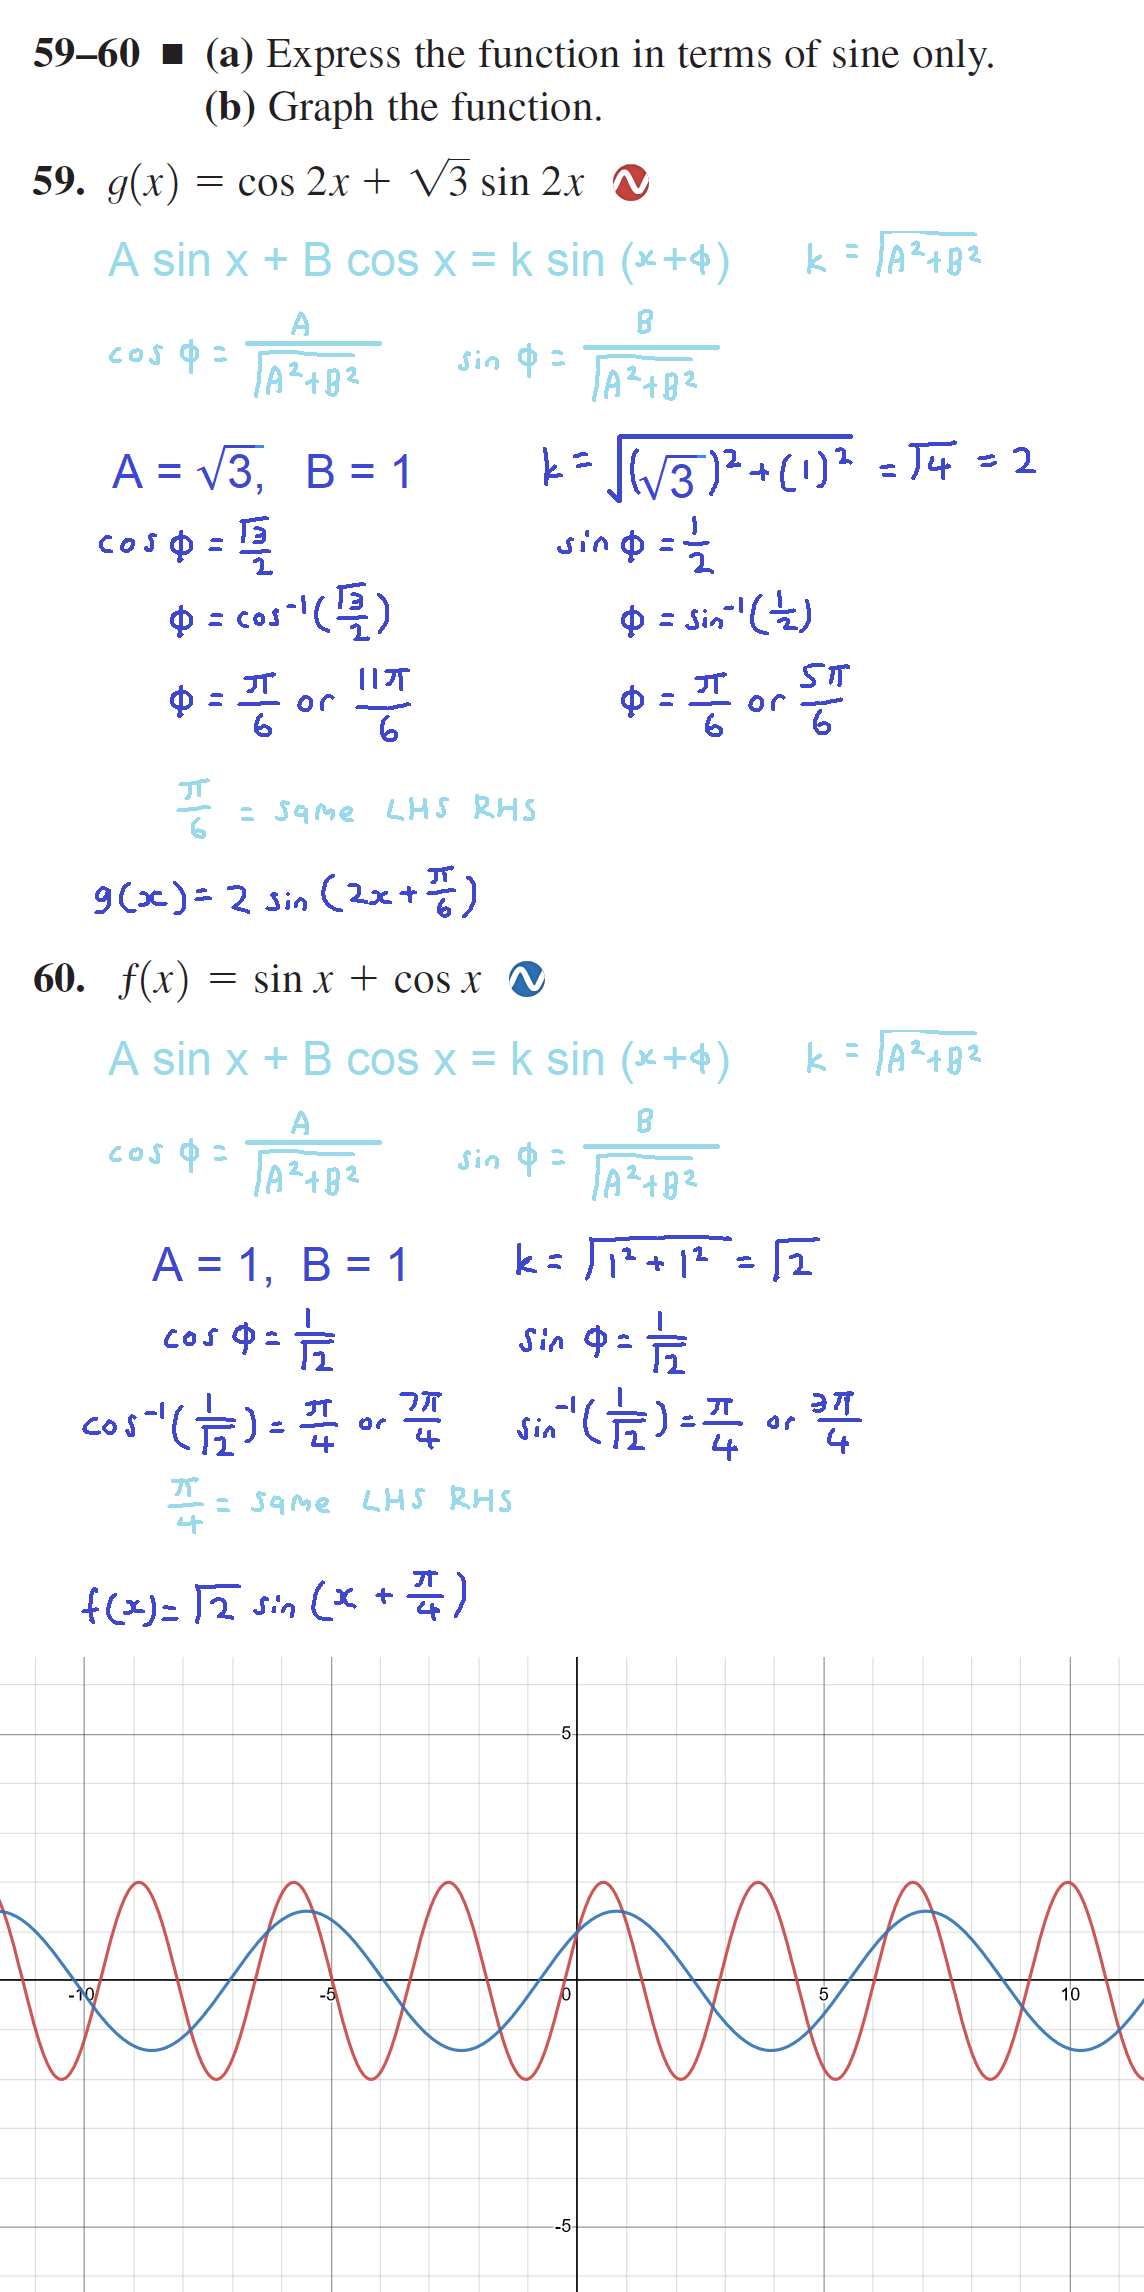 59–60 ■ (a) Express the function in terms of sine only.
(b) Graph the function.
59. g(x) = cos 2x + √3 sin 2x
A sin x + B cos x = k sin (x+ϕ) k = √A²+B²
cos ϕ = A/√A²+B² sin ϕ = B/√A²+B²
A = √3, B = 1 k = √(√3)²+(1)² = √4 = 2
cos ϕ = √3/2 sin ϕ = 1/2
ϕ = cos⁻¹(√3/2) ϕ = sin⁻¹(1/2)
ϕ = π/6 or 11π/6 ϕ = π/6 or 5π/6
π/6 = same LHS RHS
g(x) = 2 sin (2x + π/6)
60. f(x) = sin x + cos x
A sin x + B cos x = k sin (x+ϕ) k = √A²+B²
cos ϕ = A/√A²+B² sin ϕ = B/√A²+B²
A = 1, B = 1 k = √1² + 1² = √2
cos ϕ = 1/√2 sin ϕ = 1/√2
cos⁻¹(1/√2) = π/4 or 7π/4 sin⁻¹(1/√2) = π/4 or 3π/4
π/4 = same LHS RHS
f(x) = √2 sin (x + π/4)
5
-10 -5 0 5 10
-5